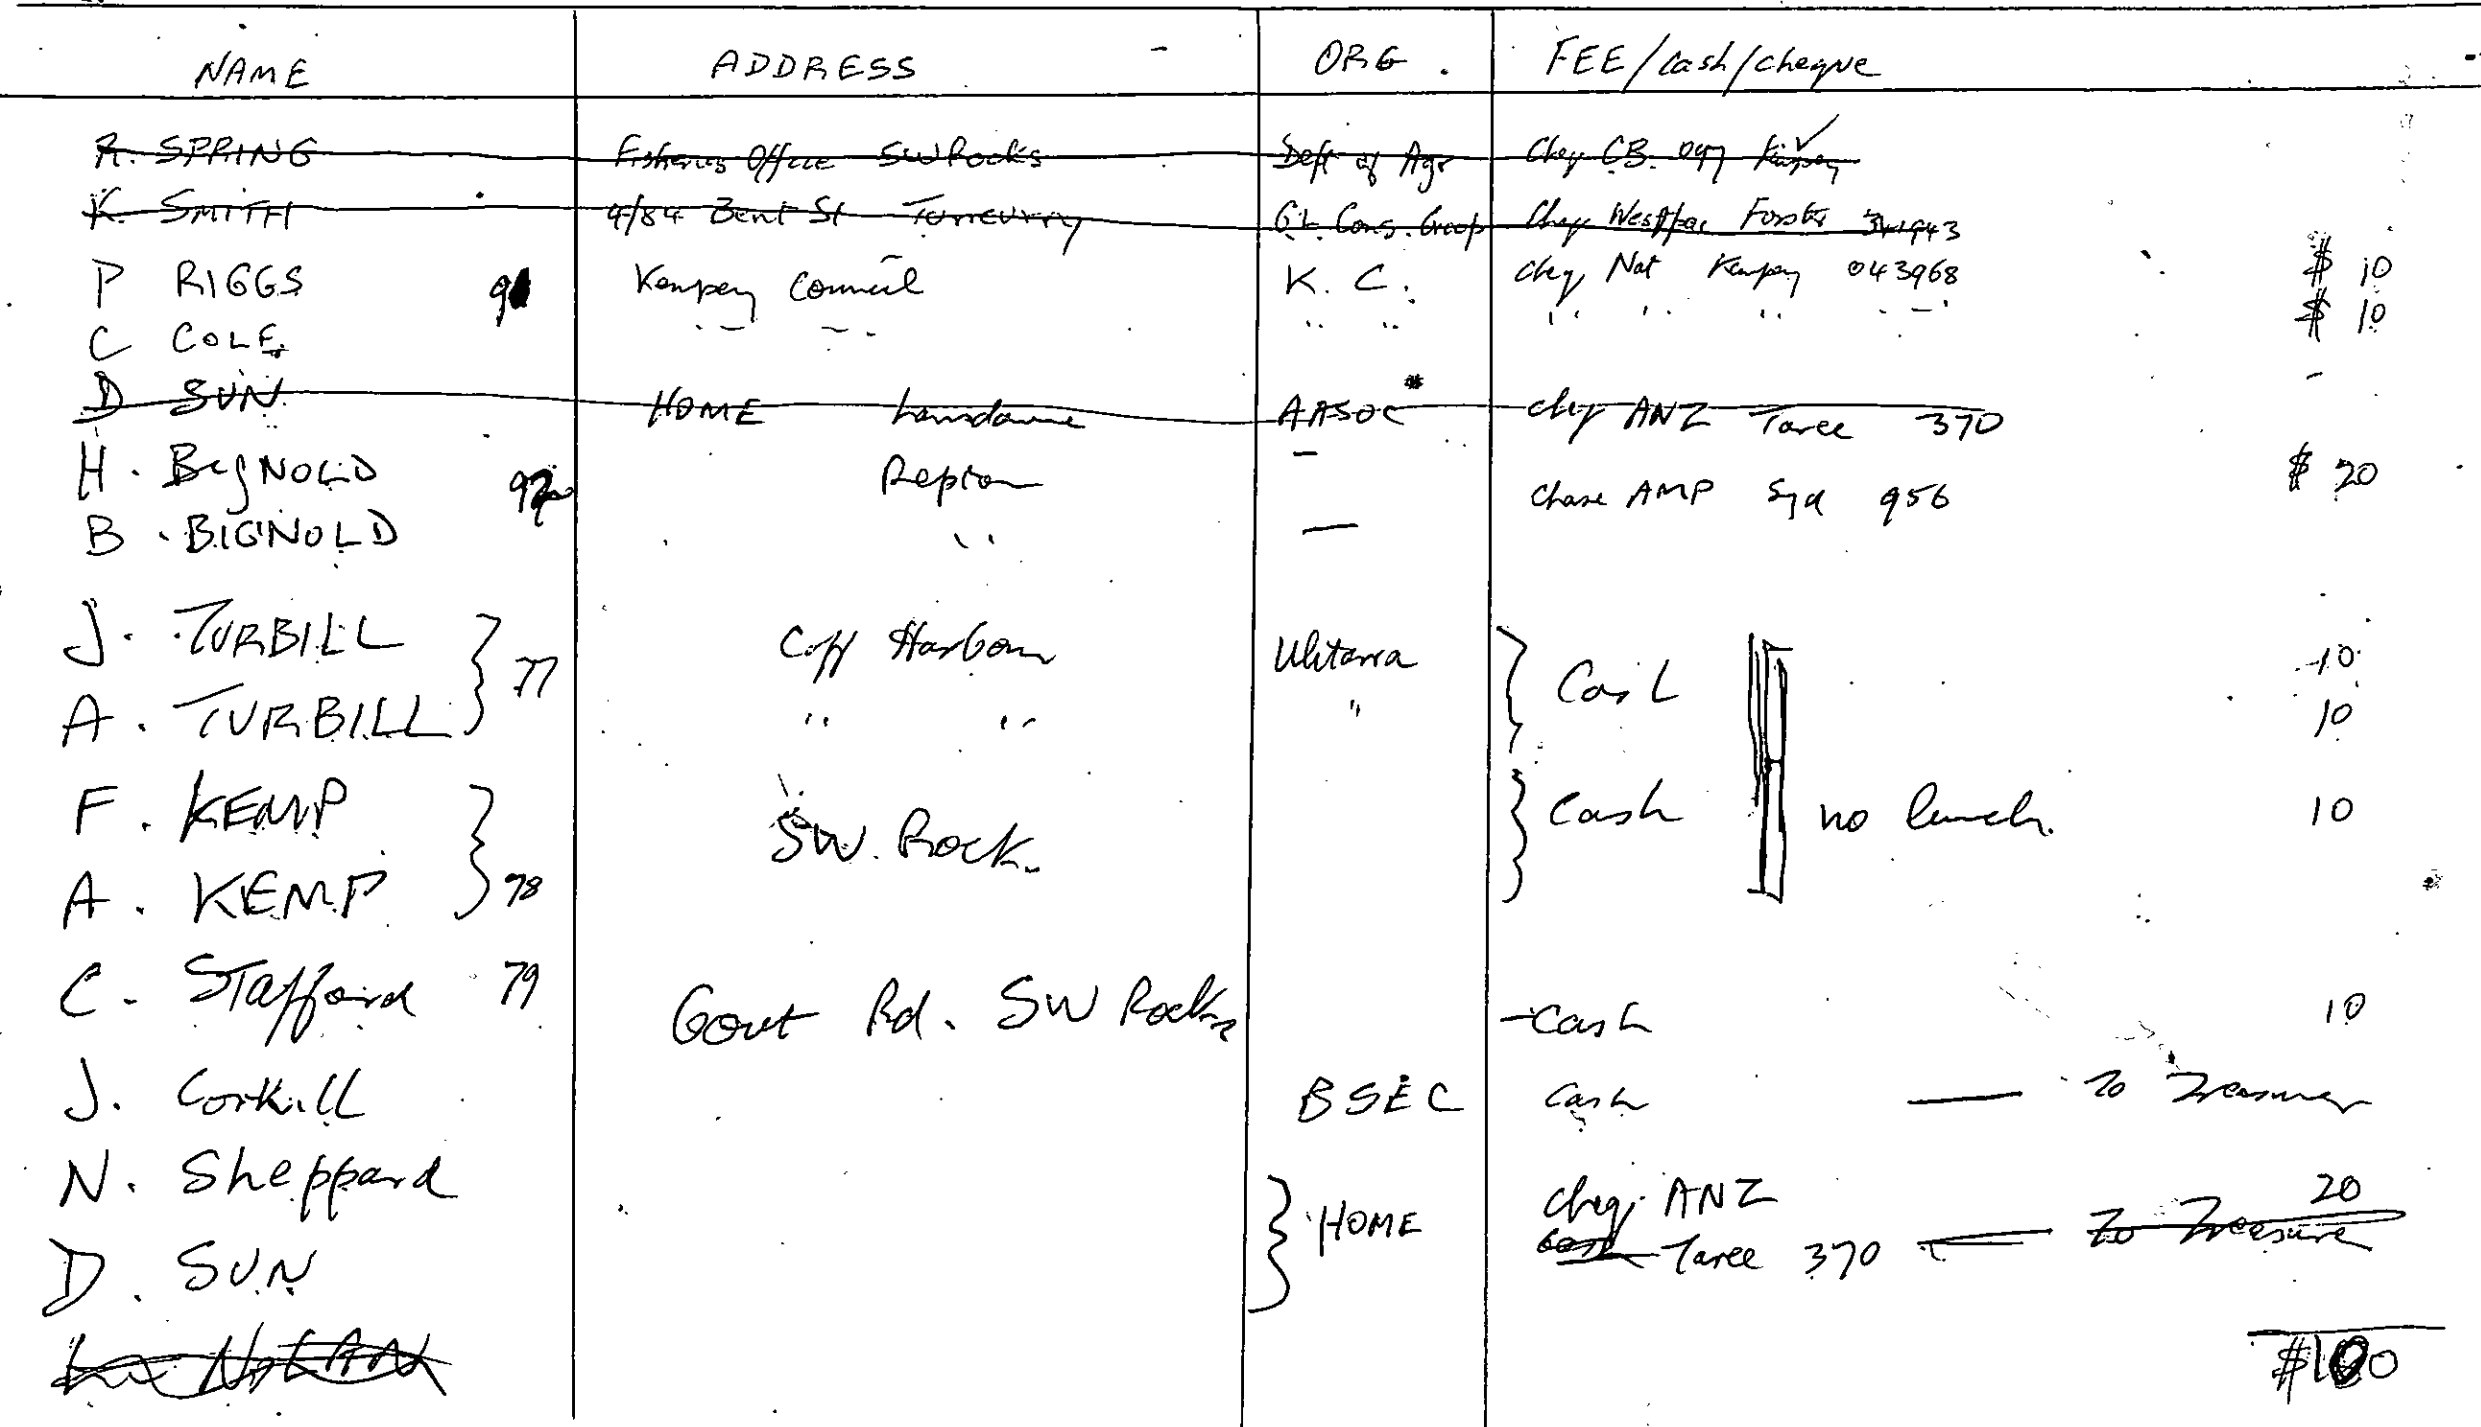 NAME ADDRESS ORG. FEE/cash/cheque
R. SPRING Fisheries Office SW Rocks Dept of Agr Cheq CB. 097 Kempsey ✓
K. SMITH 4/84 Bent St Tuncurry G.L. Cons. Group Cheq Westpac Forster 341943
P RIGGS Kempsey Council K. C. cheq Nat Kempsey 043968 $ 10
C COLE " " " " " " " " $ 10
D SUN HOME Lansdowne AASOC cheq ANZ Taree 370 -
H. BIgNOLD Repton - Chase AMP Syd 956 $ 20
B. BIGNOLD " —
J. TURBILL } 77 Coff Harbour Ulitarra } Cash 10
A. TURBILL " " " 10
F. KEMP } SW. Rock. } Cash no lunch. 10
A. KEMP 78
C. STafford 79 Govt Rd. SW Rocks - Cash 10
J. Corkill BSEC Cash — To Treasurer
N. Sheppard } HOME cheq. ANZ 20
D. SUN Cash Taree 370 — To Treasure
NOLAN $100